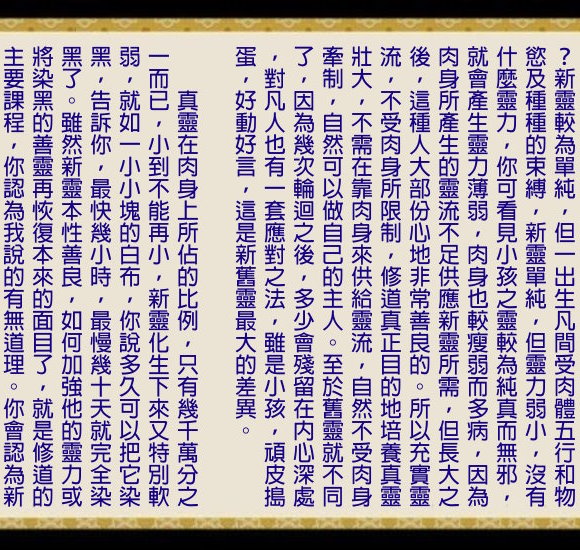 ？新靈較為單純，但一出生凡間受肉體五行和物
慾及種種的束縛，新靈單純，但靈力弱小，沒有
什麼靈力，你可看見小孩之靈較為純真而無邪，
就會產生靈力薄弱，肉身也較瘦弱而多病，因為
肉身所產生的靈流不足供應新靈所需，但長大之
後，這種人大部份心地非常善良的。所以充實靈
流，不受肉身所限制，修道真正目的地培養真靈
壯大，不需在靠肉身來供給靈流，自然不受肉身
牽制，自然可以做自己的主人。至於舊靈就不同
了，因為幾次輪迴之後，多少會殘留在內心深處
，對凡人也有一套應對之法，雖是小孩，頑皮搗
蛋，好動好言，這是新舊靈最大的差異。
真靈在肉身上所佔的比例，只有幾千萬分之
一而已，小到不能再小，新靈化生下來又特別軟
弱，就如一小小塊的白布，你說多久可以把它染
黑，告訴你，最快幾小時，最慢幾十天就完全染
黑了。雖然新靈本性善良，如何加強他的靈力或
將染黑的善靈再恢復本來的面目了，就是修道的
主要課程，你認為我說的有無道理。你會認為新